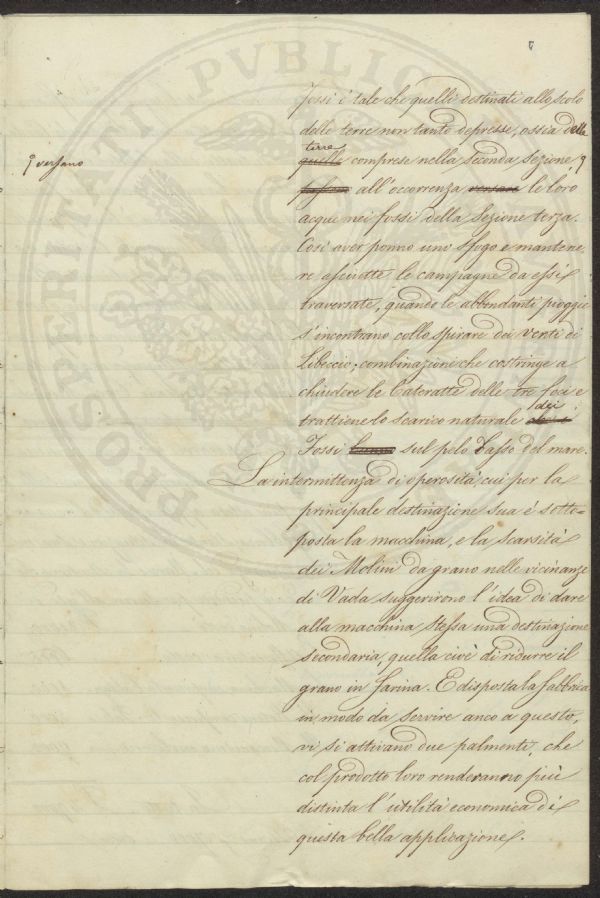 Fossi è tale che quelli destinati allo scolo
delle terre non tanto depresse, ossia delle
terre
quelle comprese nella Seconda Sezione
versano
all'occorrenza versare le loro
acque nei fossi della Sezione terza.
Così aver ponno uno sfogo e mantene-
re asciutte le campagne da essi
traversate, quando le abbondanti pioggie
s'incontrano collo spirare dei Venti di
Libeccio; combinazioni che costringe a
chiudere le Cateratte delle tre foci e
trattiene lo scarico naturale
dei
Fossi sul pelo basso del mare.
La intermittenza di operosità cui per la
principale destinazione sua è sotto=
posta la macchina, e la scarsità
dei Molini da grano nelle vicinanze
di Vada suggerirono l'idea di dare
alla macchina stessa una destinazione
secondaria, quella cioè di ridurre il
grano in farina. E disposta la fabbrica
in modo da servire anco a questo,
vi si attivano due palmenti, che
col prodotto loro renderanno più
distinta l'utilità economica di
questa bella applicazione.
PROSPERITATI PVBLICAE